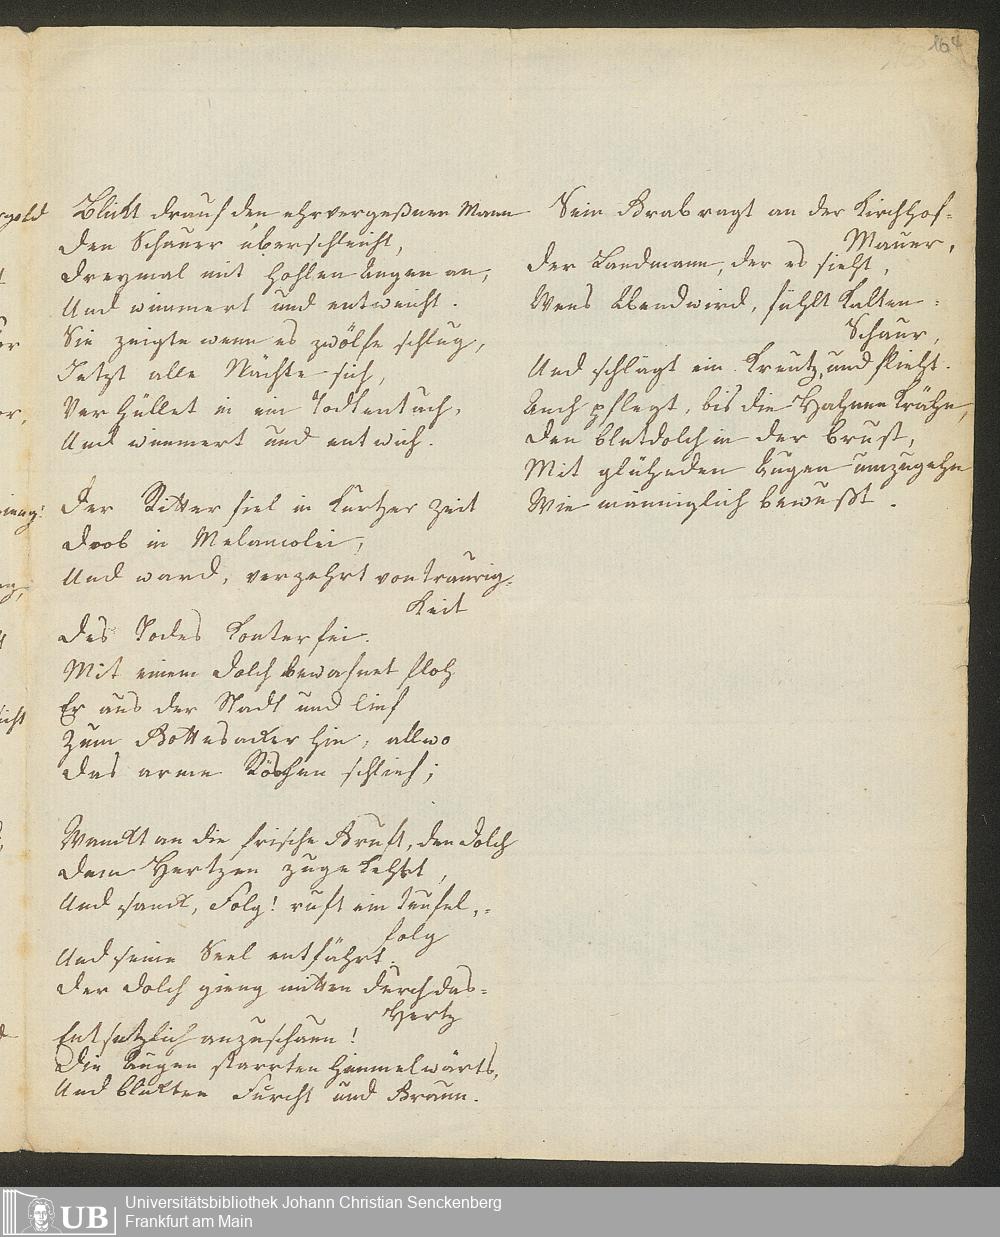 164
Blickt drauf den ehrvergeßnen Mann
Den Schauer überschleicht,
Dreymal mit hohlen Augen an,
Und wimmert und entweicht.
Sie zeigte wenn es zwölfe schlug,
Jetzt alle Nächte sich,
Verhüllet in ein Todtentuch,
Und wimmert und entwich.
Der Ritter fiel in kurtzer Zeit
Drob in Melancolei,
Und ward, verzehrt von Traurig-
keit
Des Todes Konterfei.
Mit einem Dolch bewafnet floh
Er aus der Stadt und lief
Zum Gottesacker hin, allwo
Das arme Röschen schlief;
Wanckt an die frische Gruft, den Dolch
Dem Hertzen zugekehrt,
Und sanck, Folg! ruft ein Teufel,
folg
Und seine Seel entfährt.
Der Dolch gieng mitten durch das-
Hertz
Entsetzlich anzuschaun!
Die Augen starrten himmelwärts,
Und blickten Furcht und Graun.
Sein Grab ragt an der Kirchhof-
Mauer,
Der Landmann, der es sieht,
Wens Abend wird, fühlt kalten-
Schaur,
Und schlägt ein Kreutz, und flieht.
Auch pflegt, bis die Hahnen krähn,
Den Blutdolch in der Brust,
Mit glühenden Augen umzugehn
Wie männiglich bewußt.
UB
Universitätsbibliothek Johann Christian Senckenberg
Frankfurt am Main